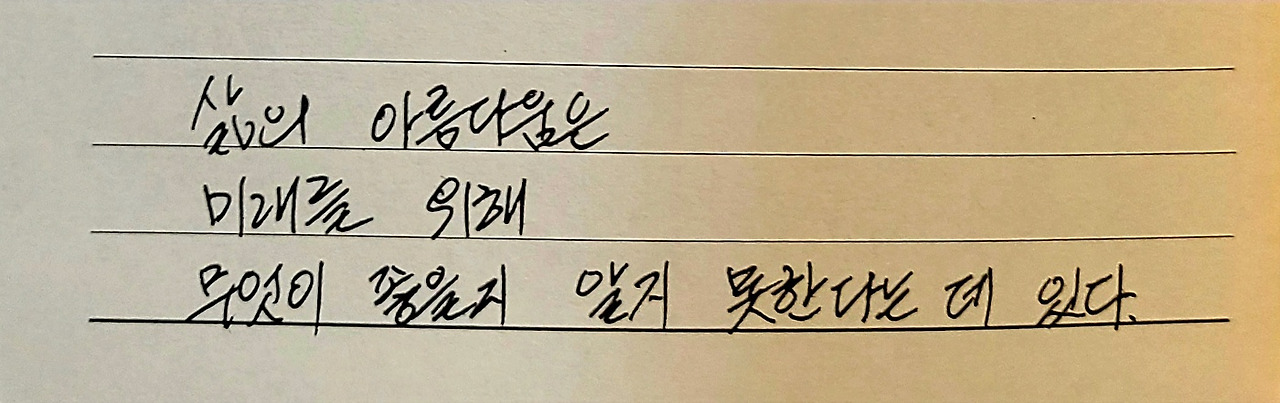 삶의 아름다움은
미래를 위해
무엇이 좋을지 알지 못한다는 데 있다.